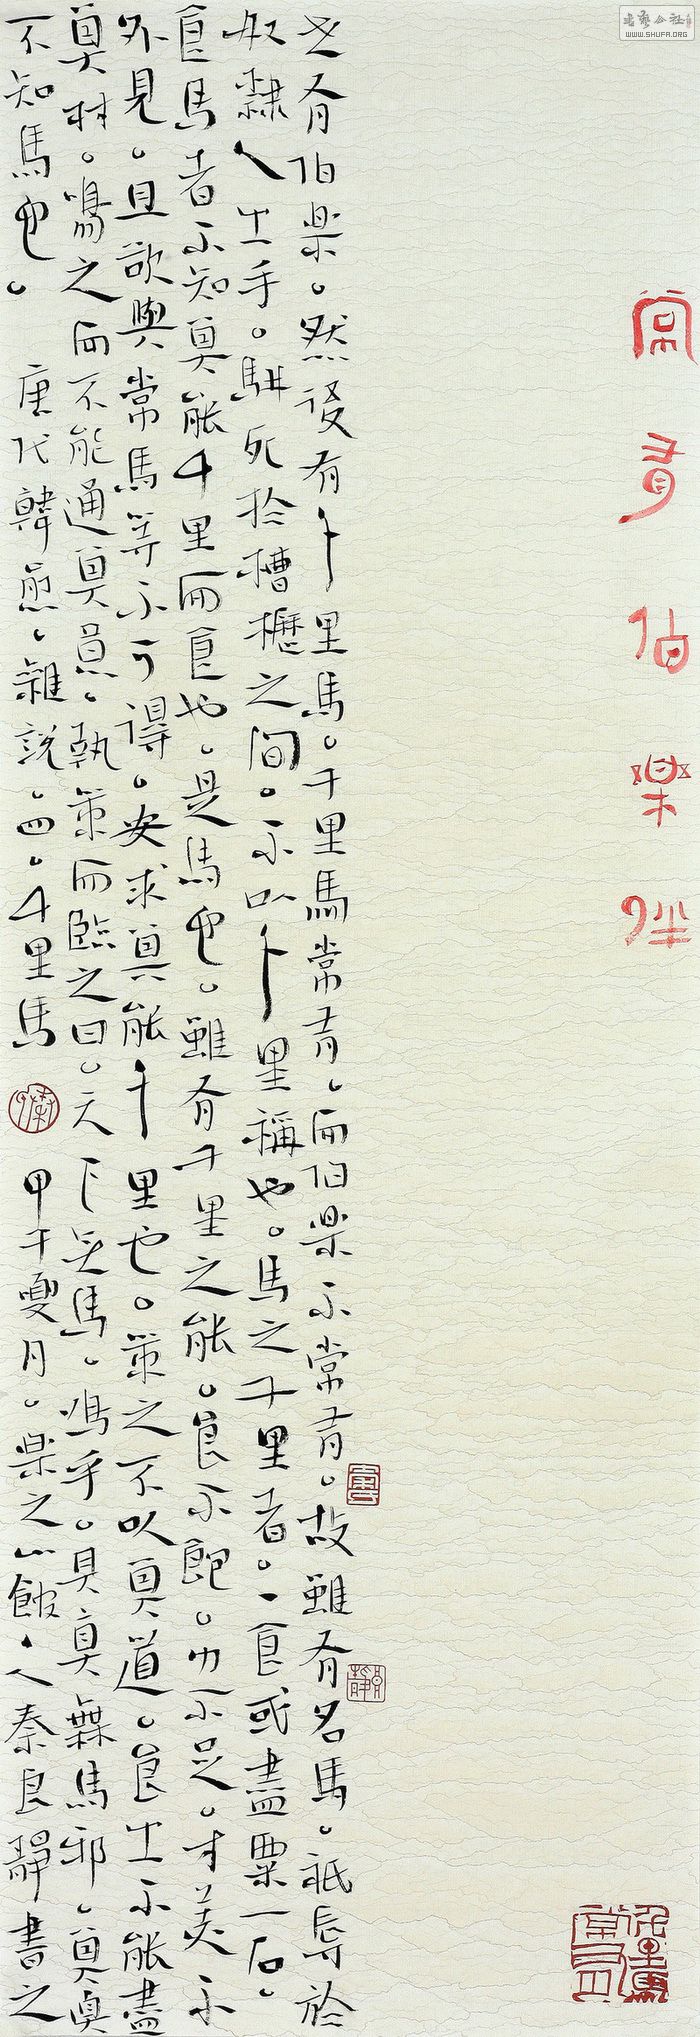 书艺公社
WWW.SHUFA.ORG
常有伯樂
世有伯樂。然後有千里馬。千里馬常有。而伯樂不常有。故雖有名馬。祇辱於
奴隸人之手。駢死於槽櫪之間。不以千里稱也。馬之千里者。一食或盡粟一石。
食馬者不知其能千里而食也。是馬也。雖有千里之能。食不飽。力不足。才美不
外見。且欲與常馬等不可得。安求其能千里也。策之不以其道。食之不能盡
其材。鳴之而不能通其意。執策而臨之曰。天下无馬。嗚乎。其真無馬邪。其真
不知馬也。 唐代韓愈。雜說。四。千里馬 甲午夏月。樂之山館人秦良靜書之